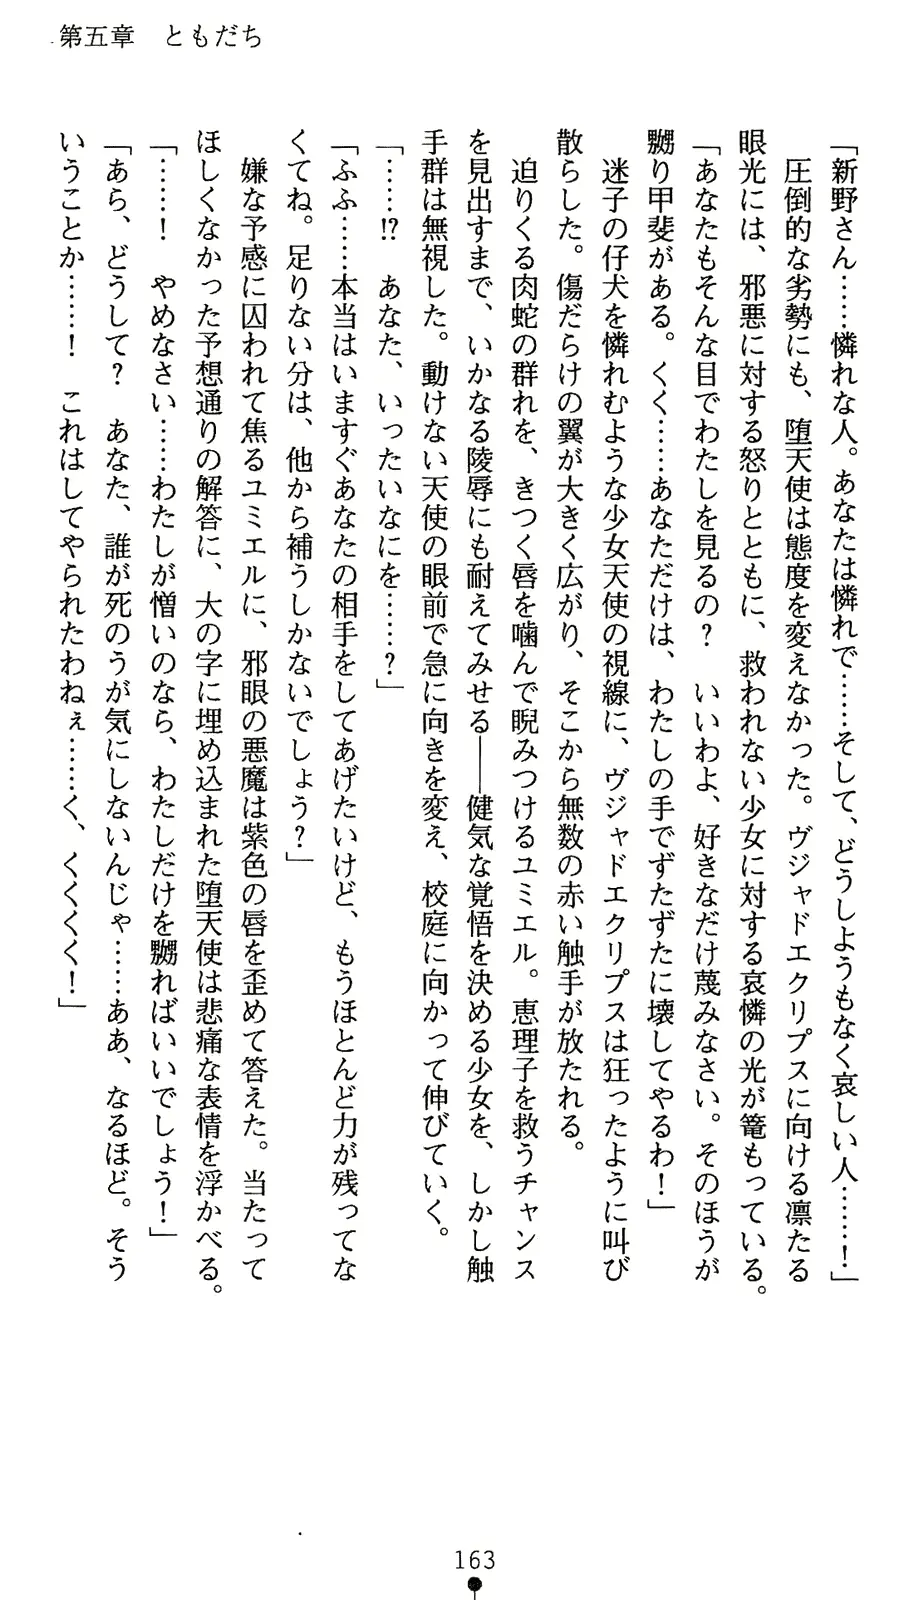 第五章　ともだち
「新野さん……憐れな人。あなたは憐れで……そして、どうしようもなく哀しい人……！」
　圧倒的な劣勢にも、堕天使は態度を変えなかった。ヴジャドエクリプスに向ける凛たる
眼光には、邪悪に対する怒りとともに、救われない少女に対する哀憐の光が篭もっている。
「あなたもそんな目でわたしを見るの？　いいわよ、好きなだけ蔑みなさい。そのほうが
嬲り甲斐がある。くく……あなただけは、わたしの手でずたずたに壊してやるわ！」
　迷子の仔犬を憐れむような少女天使の視線に、ヴジャドエクリプスは狂ったように叫び
散らした。傷だらけの翼が大きく広がり、そこから無数の赤い触手が放たれる。
　迫りくる肉蛇の群れを、きつく唇を噛んで睨みつけるユミエル。恵理子を救うチャンス
を見出すまで、いかなる陵辱にも耐えてみせる――健気な覚悟を決める少女を、しかし触
手群は無視した。動けない天使の眼前で急に向きを変え、校庭に向かって伸びていく。
「……!?　あなた、いったいなにを……？」
「ふふ……本当はいますぐあなたの相手をしてあげたいけど、もうほとんど力が残ってな
くてね。足りない分は、他から補うしかないでしょう？」
　嫌な予感に囚われて焦るユミエルに、邪眼の悪魔は紫色の唇を歪めて答えた。当たって
ほしくなかった予想通りの解答に、大の字に埋め込まれた堕天使は悲痛な表情を浮かべる。
「……！　やめなさい……わたしが憎いのなら、わたしだけを嬲ればいいでしょう！」
「あら、どうして？　あなた、誰が死のうが気にしないんじゃ……ああ、なるほど。そう
いうことか……！　これはしてやられたわねぇ……く、くくくく！」
163